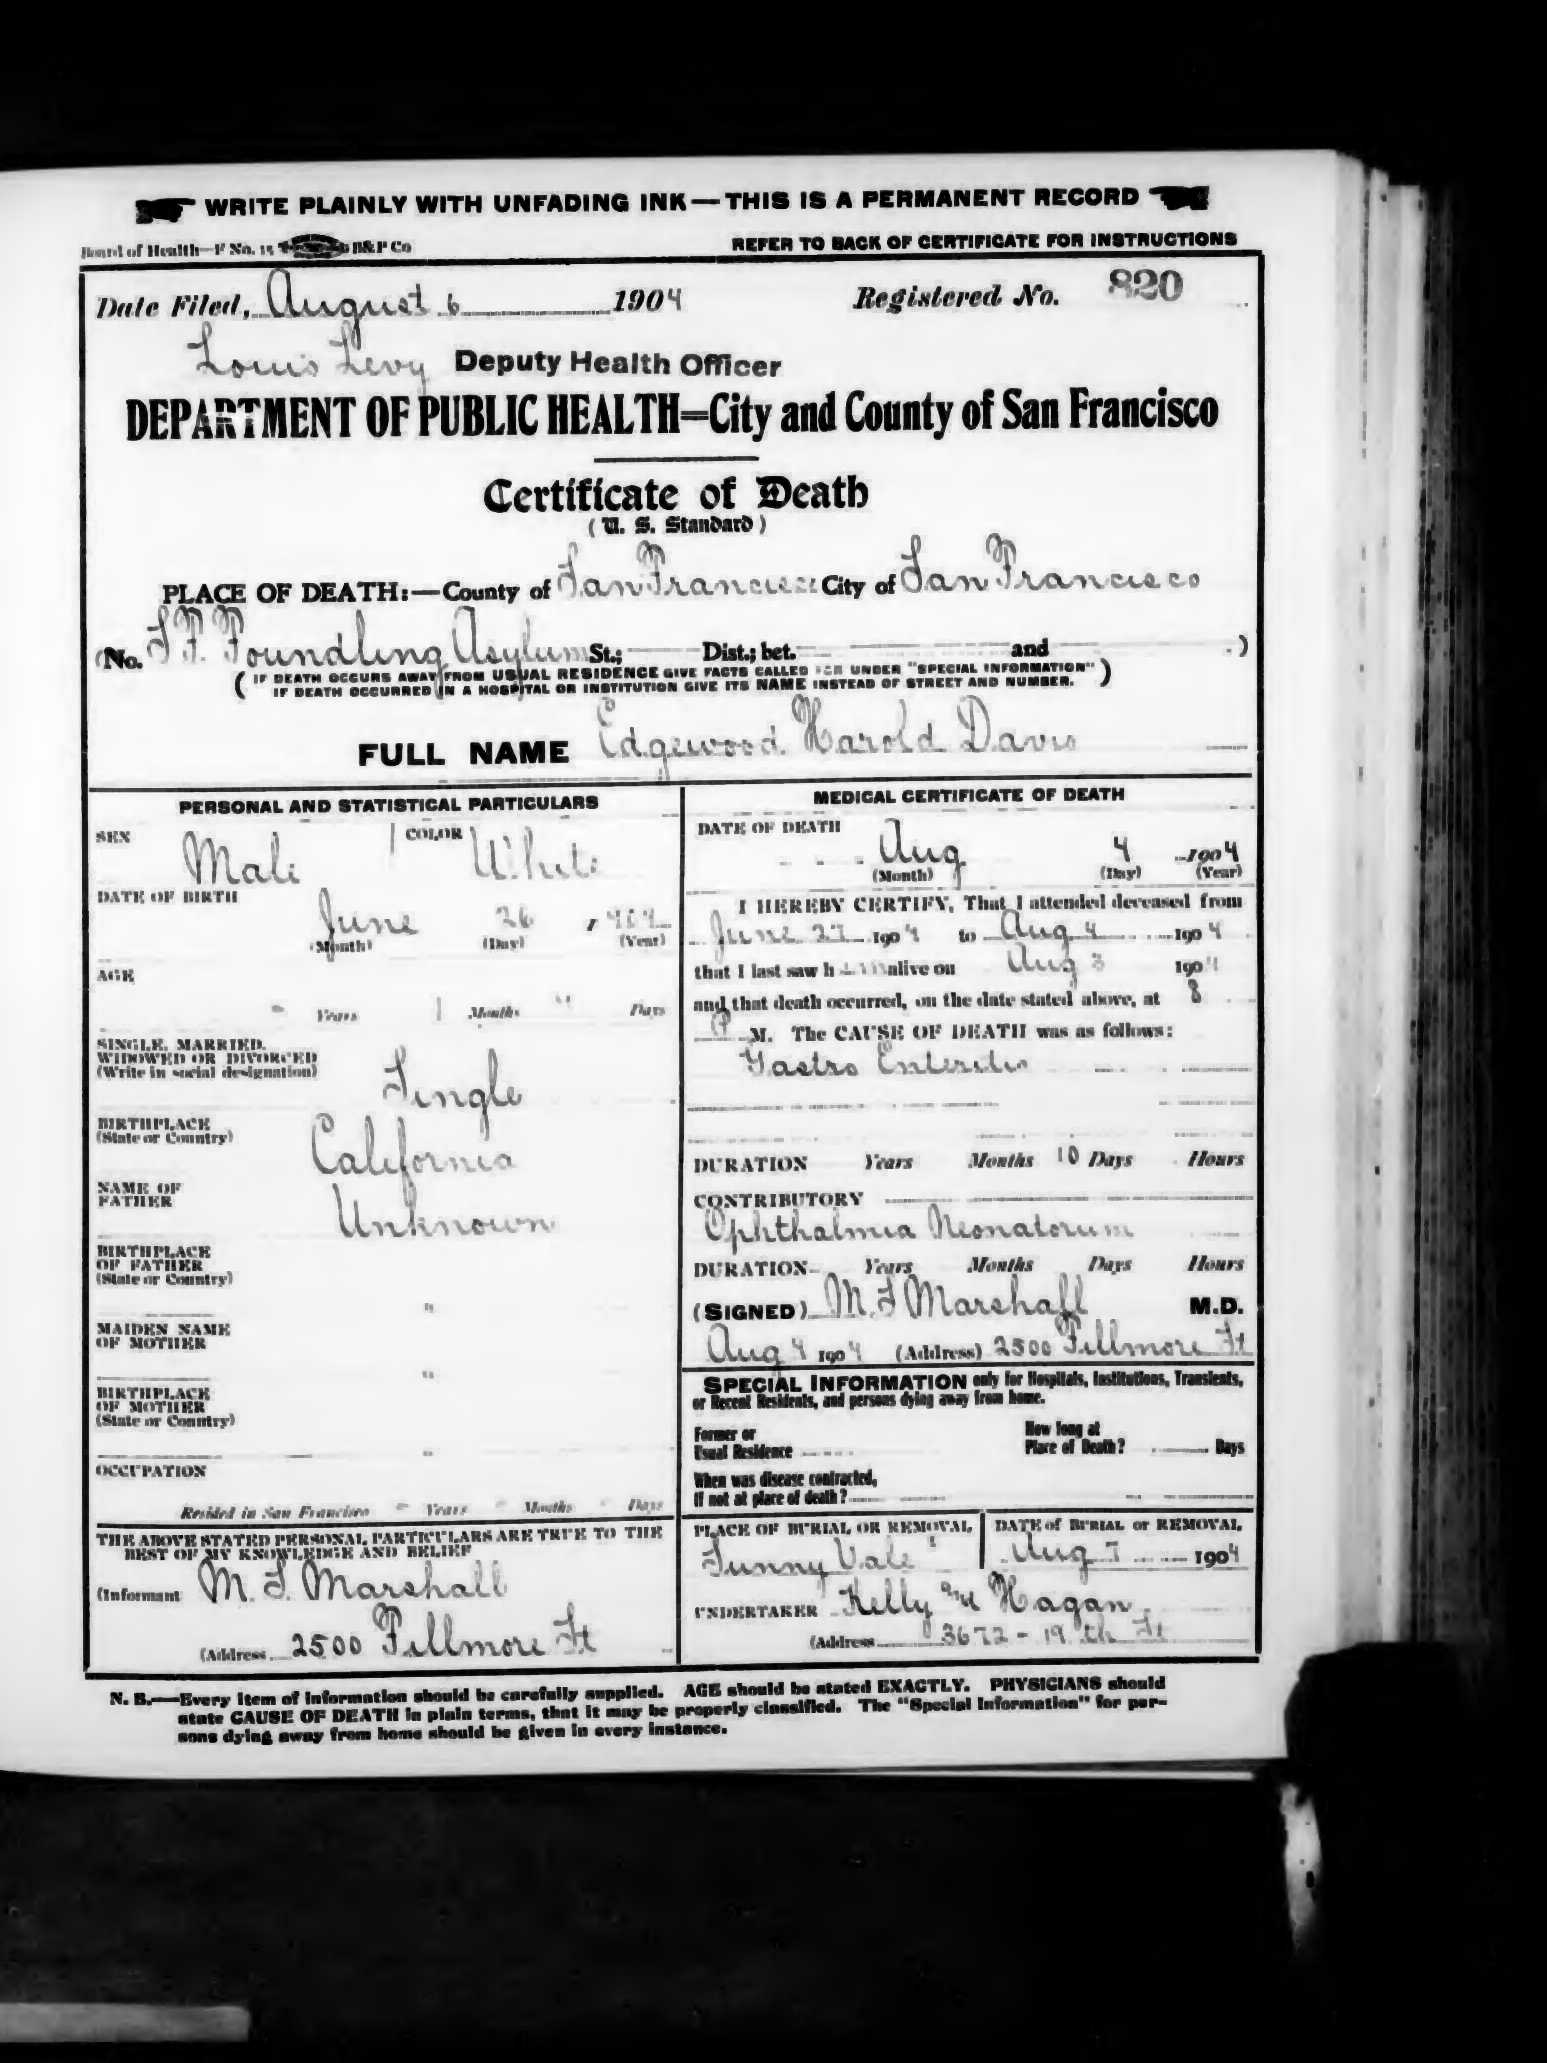 WRITE PLAINLY WITH UNFADING INK—THIS IS A PERMANENT RECORD
Board of Health—F No. 15 B&P Co
REFER TO BACK OF CERTIFICATE FOR INSTRUCTIONS
Date Filed, August 6 1904 Registered No. 820
Louis Levy Deputy Health Officer
DEPARTMENT OF PUBLIC HEALTH=City and County of San Francisco
Certificate of Death
(U. S. Standard)
PLACE OF DEATH:—County of San Francisco City of San Francisco
(No. S. F. Foundling Asylum St.; Dist.; bet. and )
( IF DEATH OCCURS AWAY FROM USUAL RESIDENCE GIVE FACTS CALLED FOR UNDER "SPECIAL INFORMATION" )
IF DEATH OCCURRED IN A HOSPITAL OR INSTITUTION GIVE ITS NAME INSTEAD OF STREET AND NUMBER.
FULL NAME Edgewood Harold Davis
PERSONAL AND STATISTICAL PARTICULARS
SEX Male COLOR White
DATE OF BIRTH
June 26 1904
(Month) (Day) (Year)
AGE
- Years 1 Months Days
SINGLE, MARRIED,
WIDOWED OR DIVORCED
(Write in social designation)
Single
BIRTHPLACE
(State or Country)
California
NAME OF
FATHER
Unknown
BIRTHPLACE
OF FATHER
(State or Country)
"
MAIDEN NAME
OF MOTHER
"
BIRTHPLACE
OF MOTHER
(State or Country)
"
OCCUPATION
Resided in San Francisco - Years - Months - Days
THE ABOVE STATED PERSONAL PARTICULARS ARE TRUE TO THE
BEST OF MY KNOWLEDGE AND BELIEF
(Informant M. S. Marshall
(Address 2500 Fillmore St
MEDICAL CERTIFICATE OF DEATH
DATE OF DEATH
Aug 4 1904
(Month) (Day) (Year)
I HEREBY CERTIFY, That I attended deceased from
June 27 1904 to Aug 4 1904
that I last saw h im alive on Aug 3 1904
and that death occurred, on the date stated above, at 8
P M. The CAUSE OF DEATH was as follows:
Gastro Enteritis
DURATION Years Months 10 Days Hours
CONTRIBUTORY
Ophthalmia Neonatorum
DURATION Years Months Days Hours
(SIGNED) M. S Marshall M.D.
Aug 4 1904 (Address) 2500 Fillmore St
SPECIAL INFORMATION only for Hospitals, Institutions, Transients,
or Recent Residents, and persons dying away from home.
Former or
Usual Residence
How long at
Place of Death? Days
When was disease contracted,
If not at place of death?
PLACE OF BURIAL OR REMOVAL
Sunny Vale
DATE of BURIAL or REMOVAL
Aug 7 1904
UNDERTAKER Kelly and Hagan
(Address 3672 - 19 th St
N. B.—Every item of information should be carefully supplied. AGE should be stated EXACTLY. PHYSICIANS should
state CAUSE OF DEATH in plain terms, that it may be properly classified. The "Special Information" for per-
sons dying away from home should be given in every instance.